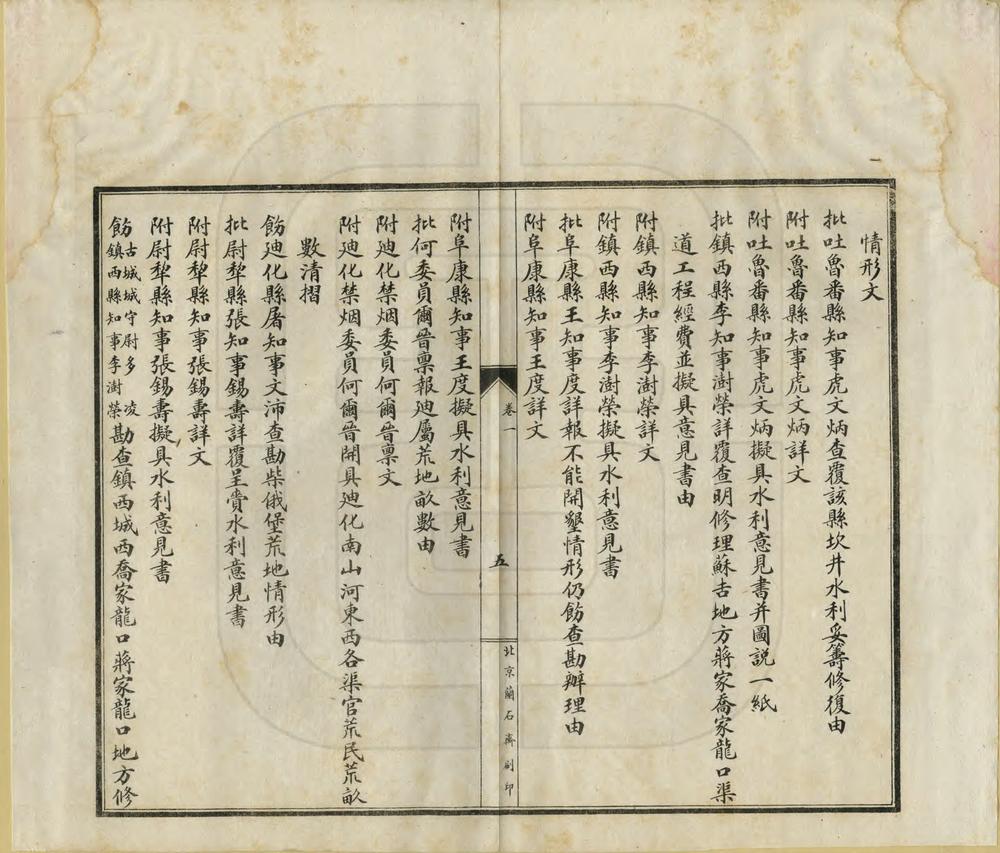 情形文
批吐魯番縣知事虎文炳查覆該縣坎井水利妥籌修復由
附吐魯番縣知事虎文炳詳文
附吐魯番縣知事虎文炳擬具水利意見書并圖說一紙
批鎮西縣李知事澍榮詳覆查明修理蘇吉地方蔣家喬家龍口渠
道工程經費並擬具意見書由
附鎮西縣知事李澍榮詳文
附鎮西縣知事李澍榮擬具水利意見書
批阜康縣王知事度詳報不能開墾情形仍飭查勘辦理由
附阜康縣知事王度詳文
卷一
五
北京蘭石齋刷印
附阜康縣知事王度擬具水利意見書
批何委員爾晉稟報廸屬荒地畝數由
附廸化禁烟委員何爾晉稟文
附廸化禁烟委員何爾晉開具廸化南山河東西各渠官荒民荒畝
數清摺
飭廸化縣屠知事文沛查勘柴俄堡荒地情形由
批尉犂縣張知事錫壽詳覆呈賫水利意見書
附尉犂縣知事張錫壽詳文
附尉犂縣知事張錫壽擬具水利意見書
飭古城城守尉多凌鎮西縣知事李澍榮勘查鎮西城西喬家龍口蔣家龍口地方修